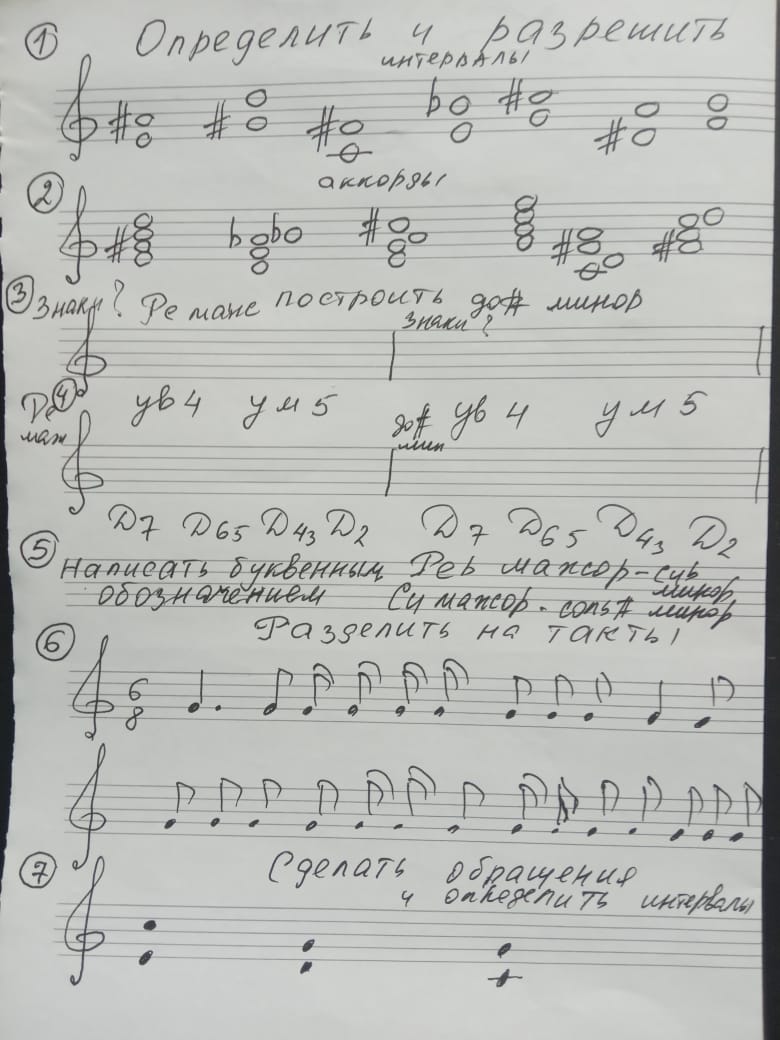 ① Определить и разрешить
интервалы
② аккорды
③ Знаки? Ре маж построить до# минор
Знаки?
④ Ре маж ув 4 ум 5 до# мин ув 4 ум 5
Д7 Д65 Д43 Д2 Д7 Д65 Д43 Д2
⑤ Написать буквенным Реь мажор - сиь минор
обозначением Си мажор - соль# минор
⑥ Разделить на такты
6
8
⑦ Сделать обращения
и определить интервалы